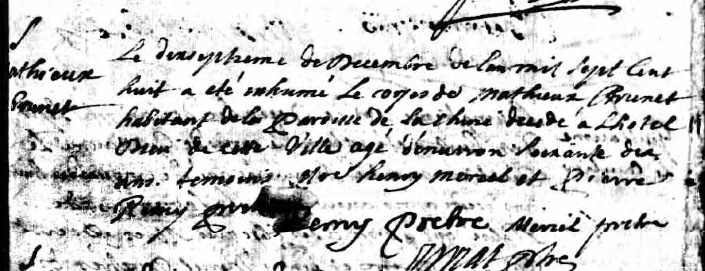 S
Mathieux
Brunet
Le dixseptieme de Decembre de lan mil sept Cent
huit a eté inhumé Le corps de Mathieux Brunet
habitant de la Paroisse de La chine decedé a Lhotel
Dieu de cette Ville agé denviron Soixante dix
ans temoins henry meriel et Pierre
Remy
Remy Pretre Meriel pretre
S